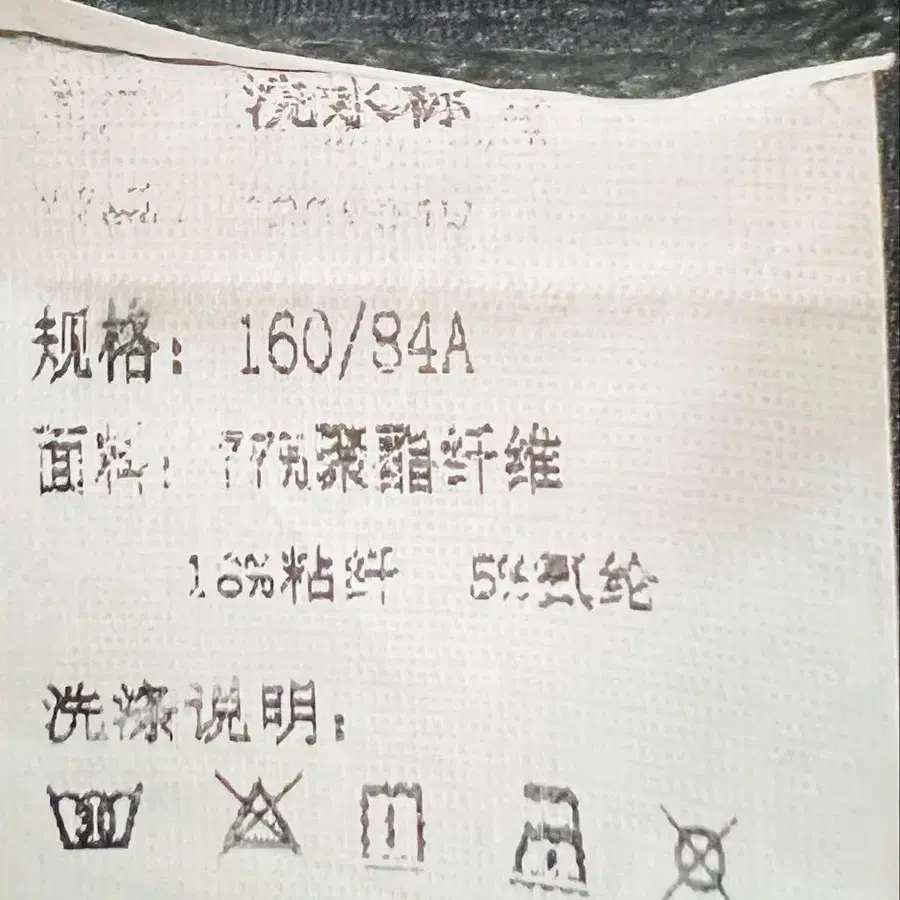 洗水标
规格：160/84A
面料：77%聚酯纤维
18%粘纤 5%氨纶
洗涤说明：
30